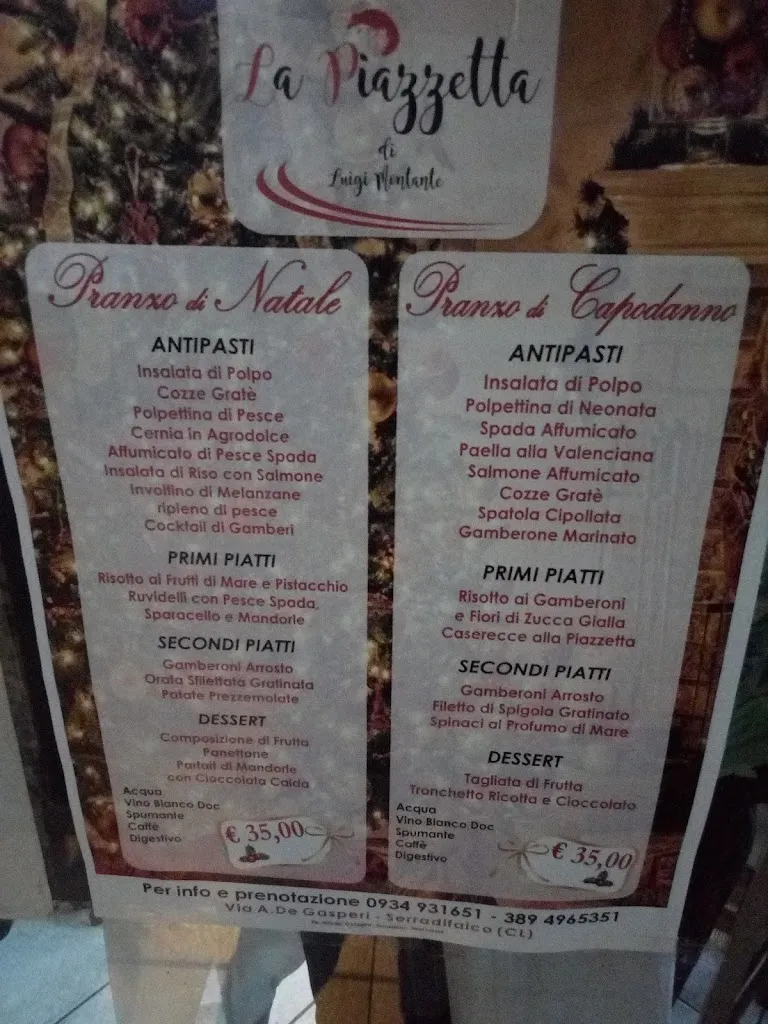 La Piazzetta
di
Luigi Montante
Pranzo di Natale
ANTIPASTI
Insalata di Polpo
Cozze Gratè
Polpettina di Pesce
Cernia in Agrodolce
Affumicato di Pesce Spada
Insalata di Riso con Salmone
Involtino di Melanzane
ripieno di pesce
Cocktail di Gamberi
PRIMI PIATTI
Risotto ai Frutti di Mare e Pistacchio
Ruvidelli con Pesce Spada,
Sparacello e Mandorle
SECONDI PIATTI
Gamberoni Arrosto
Orata Sfilettata Gratinata
Patate Prezzemolate
DESSERT
Composizione di Frutta
Panettone
Parfait di Mandorle
con Cioccolata Calda
Acqua
Vino Bianco Doc
Spumante
Caffè
Digestivo
€ 35,00
Pranzo di Capodanno
ANTIPASTI
Insalata di Polpo
Polpettina di Neonata
Spada Affumicato
Paella alla Valenciana
Salmone Affumicato
Cozze Gratè
Spatola Cipollata
Gamberone Marinato
PRIMI PIATTI
Risotto ai Gamberoni
e Fiori di Zucca Gialla
Caserecce alla Piazzetta
SECONDI PIATTI
Gamberoni Arrosto
Filetto di Spigola Gratinato
Spinaci al Profumo di Mare
DESSERT
Tagliata di Frutta
Tronchetto Ricotta e Cioccolato
Acqua
Vino Bianco Doc
Spumante
Caffè
Digestivo
€ 35,00
Per info e prenotazione 0934 931651 - 389 4965351
Via A.De Gasperi - Serradifalco (CL)